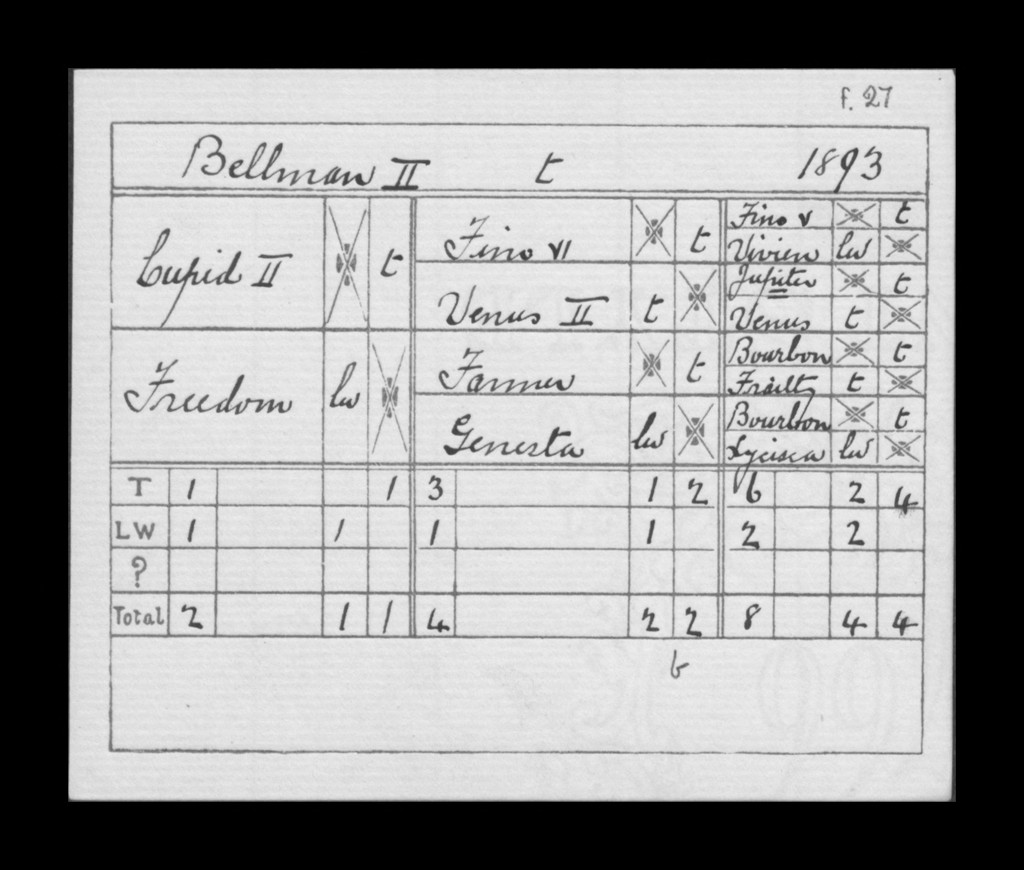 f. 27
Bellman II t 1893
Cupid II t
Freedom lw
Fino VI t
Venus II t
Farmer t
Genesta lw
Fino V t
Vivien lw
Jupiter t
Venus t
Bourbon t
Frailty t
Bourbon t
Lycisca lw
T 1 1 3 1 2 6 2 4
LW 1 1 1 1 2 2
?
Total 2 1 1 4 2 2 8 4 4
b